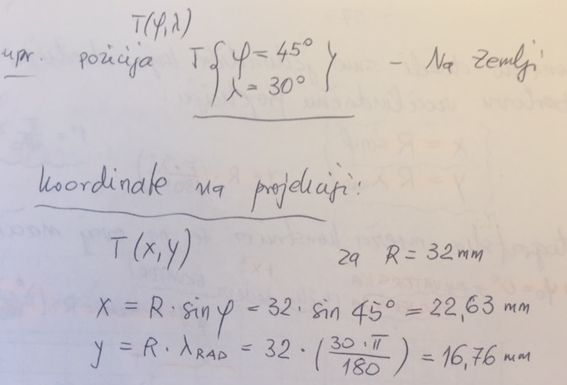 T(φ,λ)
npr. pozicija T{φ = 45° λ = 30°} - Na Zemlji
koordinate na projekciji:
T(x,y) za R = 32 mm
x = R · sin φ = 32 · sin 45° = 22,63 mm
y = R · λ_RAD = 32 · (30 · π / 180) = 16,76 mm